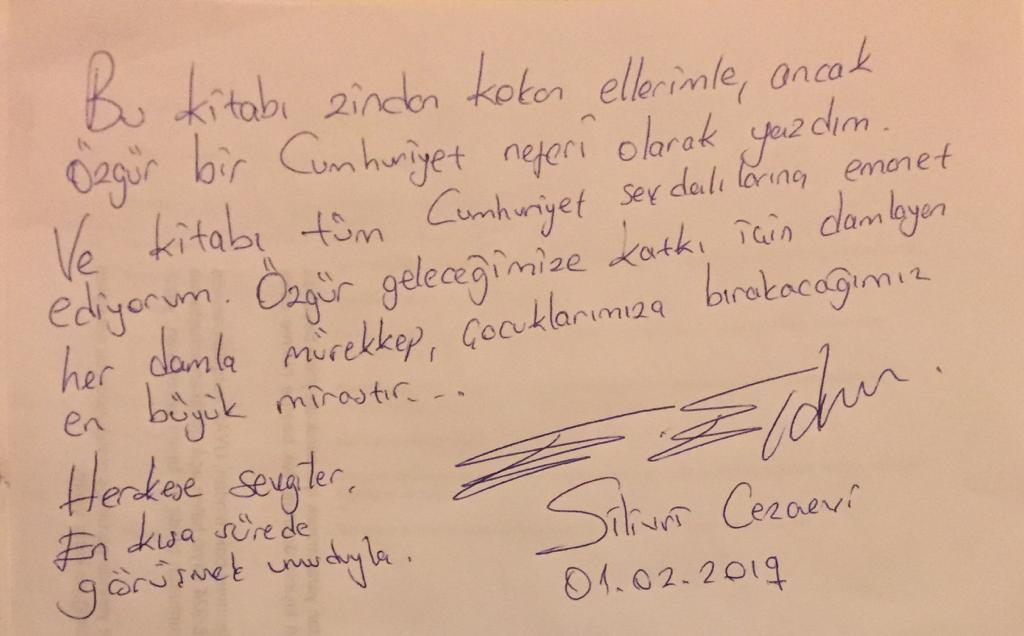 Bu kitabı zindan kokan ellerimle, ancak
Özgür bir Cumhuriyet neferi olarak yazdım.
Ve kitabı tüm Cumhuriyet sevdalılarına emanet
ediyorum. Özgür geleceğimize katkı için damlayan
her damla mürekkep, çocuklarımıza bırakacağımız
en büyük mirastır...
Herkese sevgiler.
En kısa sürede
görüşmek umuduyla.
Silivri Cezaevi
01.02.2019